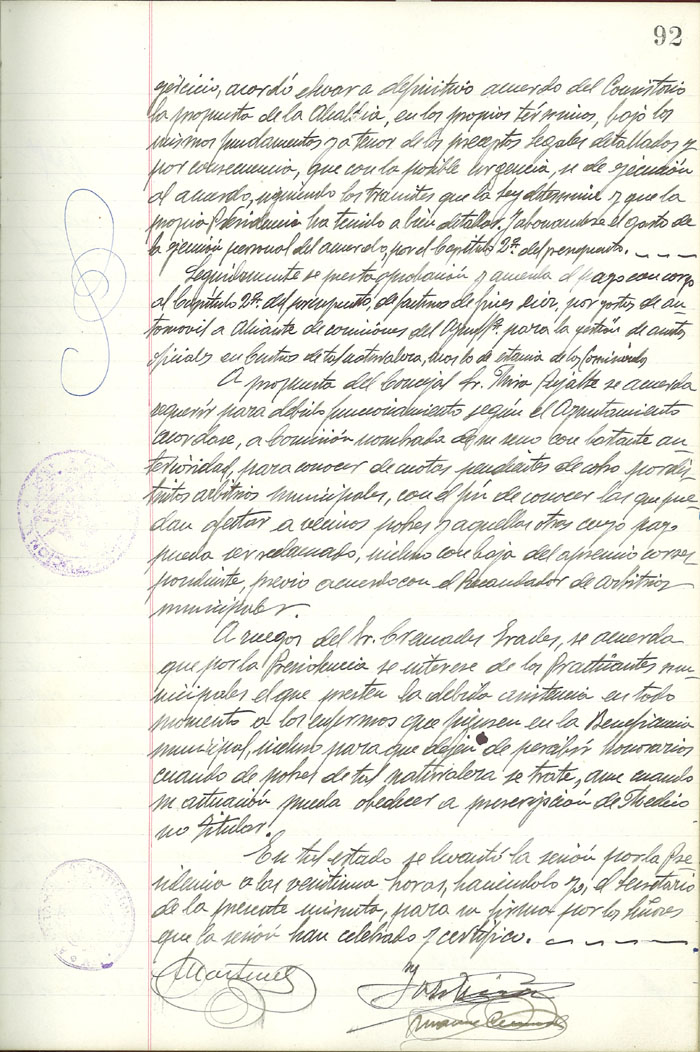 92
ejercicio, acordó elevar a definitivo acuerdo del Consistorio
la propuesta de la Alcaldía, en los propios términos, bajo los
mismos fundamentos y a tenor de los preceptos legales detallados y
por consecuencia, que con la posible urgencia, se de ejecución
al acuerdo, siguiendo los trámites que la Ley determine y que la
propia Presidencia ha tenido a bien detallar. Y abonandose el gasto de
la ejecución personal del acuerdo, por el Capítulo 2º. del presupuesto.
Seguidamente se presta aprobación y acuerda el pago con cargo
al Capítulo 2º. del presupuesto, de facturas de por gastos de au-
tomovil a Alicante de comisiones del para la gestión de asuntos
oficiales en Centros de tal naturaleza, de estancia de los
A propuesta del Concejal Sr. Mira se acuerda
requerir para debido funcionamiento según el Ayuntamiento
acordase, a Comisión nombrada de su seno con bastante an-
terioridad, para conocer de cuotas pendientes de cobro por dis-
tintos arbitrios municipales, con el fin de conocer las que pue-
dan afectar a vecinos pobres y aquellas otras cuyo pago
pueda ser reclamado, incluso con baja del apremio corres-
pondiente, previo acuerdo con el Recaudador de arbitrios
municipales.
A ruegos del Sr. Cremades Erades, se acuerda
que por la Presidencia se interese de los Practicantes mu-
nicipales el que presten la debida asistencia en todo
momento a los enfermos que figuren en la Beneficencia
municipal, incluso para que dejen de percibir honorarios
cuando de pobres de tal naturaleza se trate, aun cuando
su actuación pueda obedecer a prescripción de Médico
no Titular.
En tal estado se levantó la sesión por la Pre-
sidencia a las veintiuna horas, haciendolo yo, el Secretario
de la presente minuta, para su firma por los Señores
que la sesión han celebrado y certifico.
Martinez